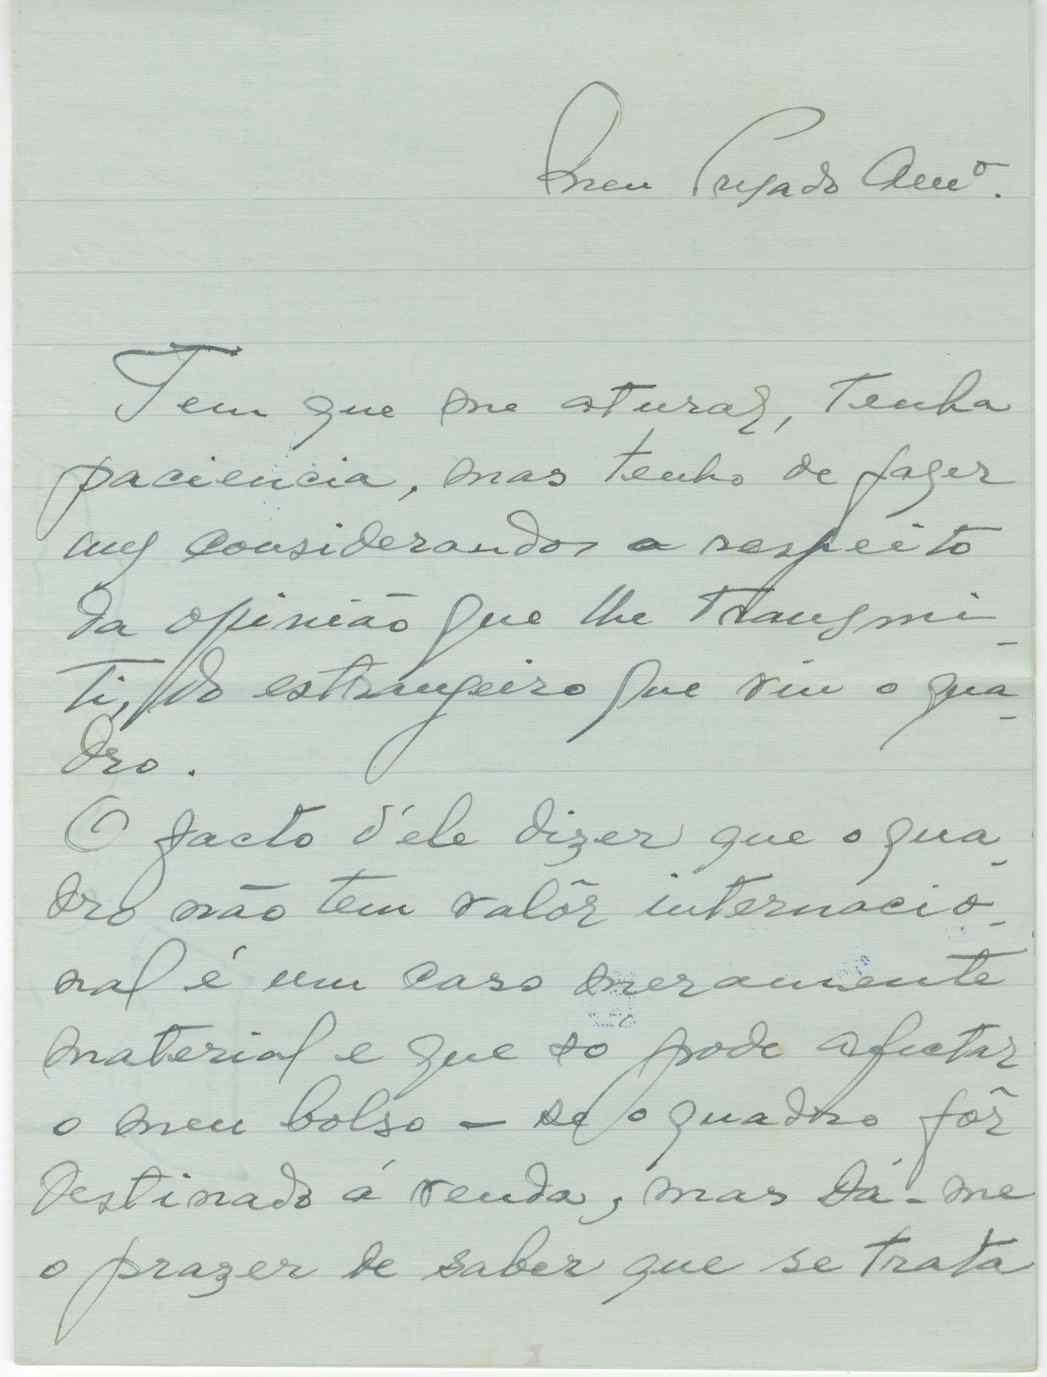 Meu Presado Amº.
Tem que me aturar, tenha
paciencia, mas tenho de fazer
uns considerandos a respeito
da opinião que lhe transmi-
ti, do estrangeiro que viu o qua-
dro.
O facto d'ele dizer que o qua-
dro não tem valôr internacio-
nal é um caso meramente
material e que so pode afectar
o meu bolso - se o quadro fôr
destinado á venda, mas dá-me
o prazer de saber que se trata